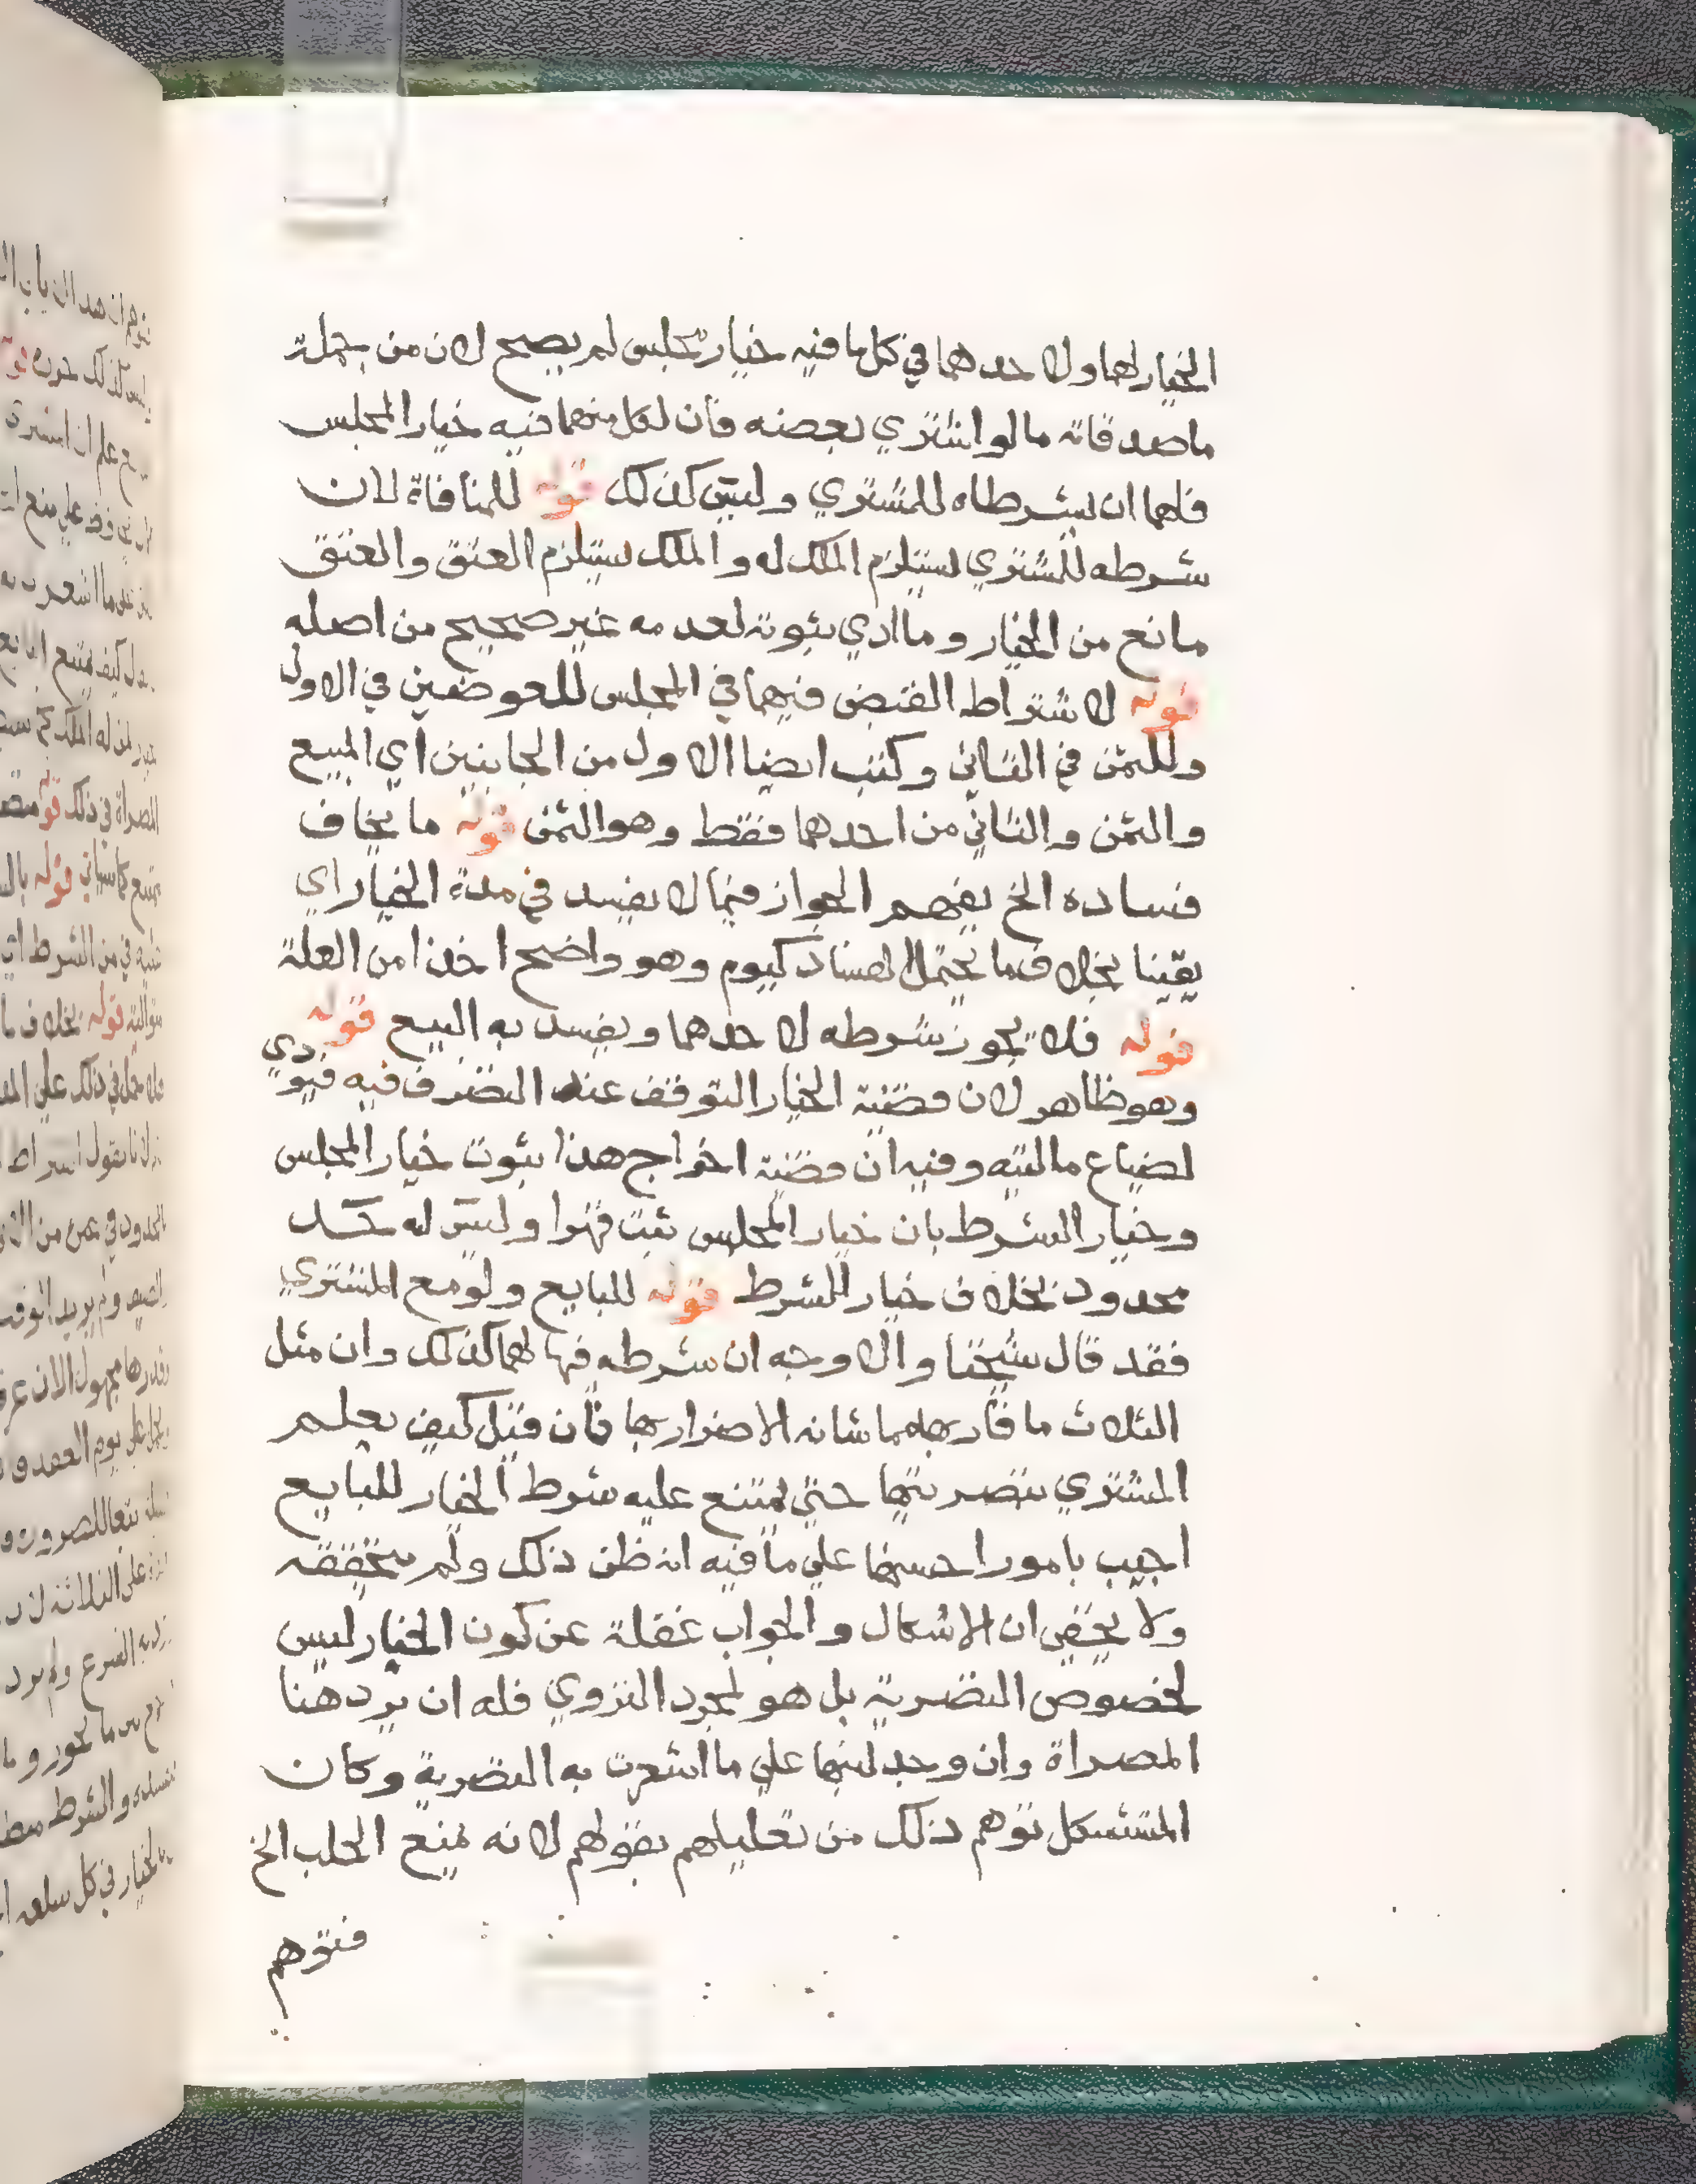 الخيار لهما ولاحدهما في كل ما فيه خيار مجلس لم يصح لان من جملة
ماصدقاته ما لو اشتري بعضه فان لكل منهما فيه خيار المجلس
فلهما ان يشرطاه للمشتري وليس كذلك قوله للمنافاة لان
شرطه للمشتري يستلزم الملك له والملك يستلزم العتق والعتق
مانع من الخيار وما ادي ثبوته لعدمه غير صحيح من اصله
قوله لاشتراط القبض فيهما في المجلس للعوضين في الاول
وللثمن في الثاني وكتب ايضا الاول من الجانبين اي المبيع
والثمن والثاني من احدهما فقط وهو الثمن قوله ما يخاف
فساده الخ يفهم الجواز فيما لا يفسد في مدة الخيار اي
يقينا بخلاف ما يحتمل الفساد كيوم وهو واضح اخذا من العلة
قوله فلا يجوز شرطه لاحدهما ويفسد به البيع قوله
وهو ظاهر لان قضية الخيار التوقف عند التصرف فيه فيودي
لضياع ماليته وفيه ان قضية اخراج هذا ثبوت خيار المجلس
وخيار الشرط بان خيار المجلس ثبت قهرا وليس له حد
محدود بخلاف خيار الشرط قوله للبايع ولو مع المشتري
فقد قال شيخنا والاوجه ان شرطه فيها لهما كذلك وان مثل
الثلاث ما قاربها مما شانه الاضرار بها فان قيل كيف يعلم
المشتري بتصريتها حتي يمتنع عليه شرط الخيار للبايع
اجيب بامور احسنها علي ما فيه انه ظن ذلك ولم يتحققه
ولا يخفي ان الاشكال والجواب غفلة عن كون الخيار ليس
لخصوص التصرية بل هو لمجرد التروي فله ان يرد هنا
المصراة وان وجد لبنها علي ما اشعرت به التصرية وكان
المستشكل توهم ذلك من تعليلهم بقولهم لانه يمنع الحلب الخ
فتوهم